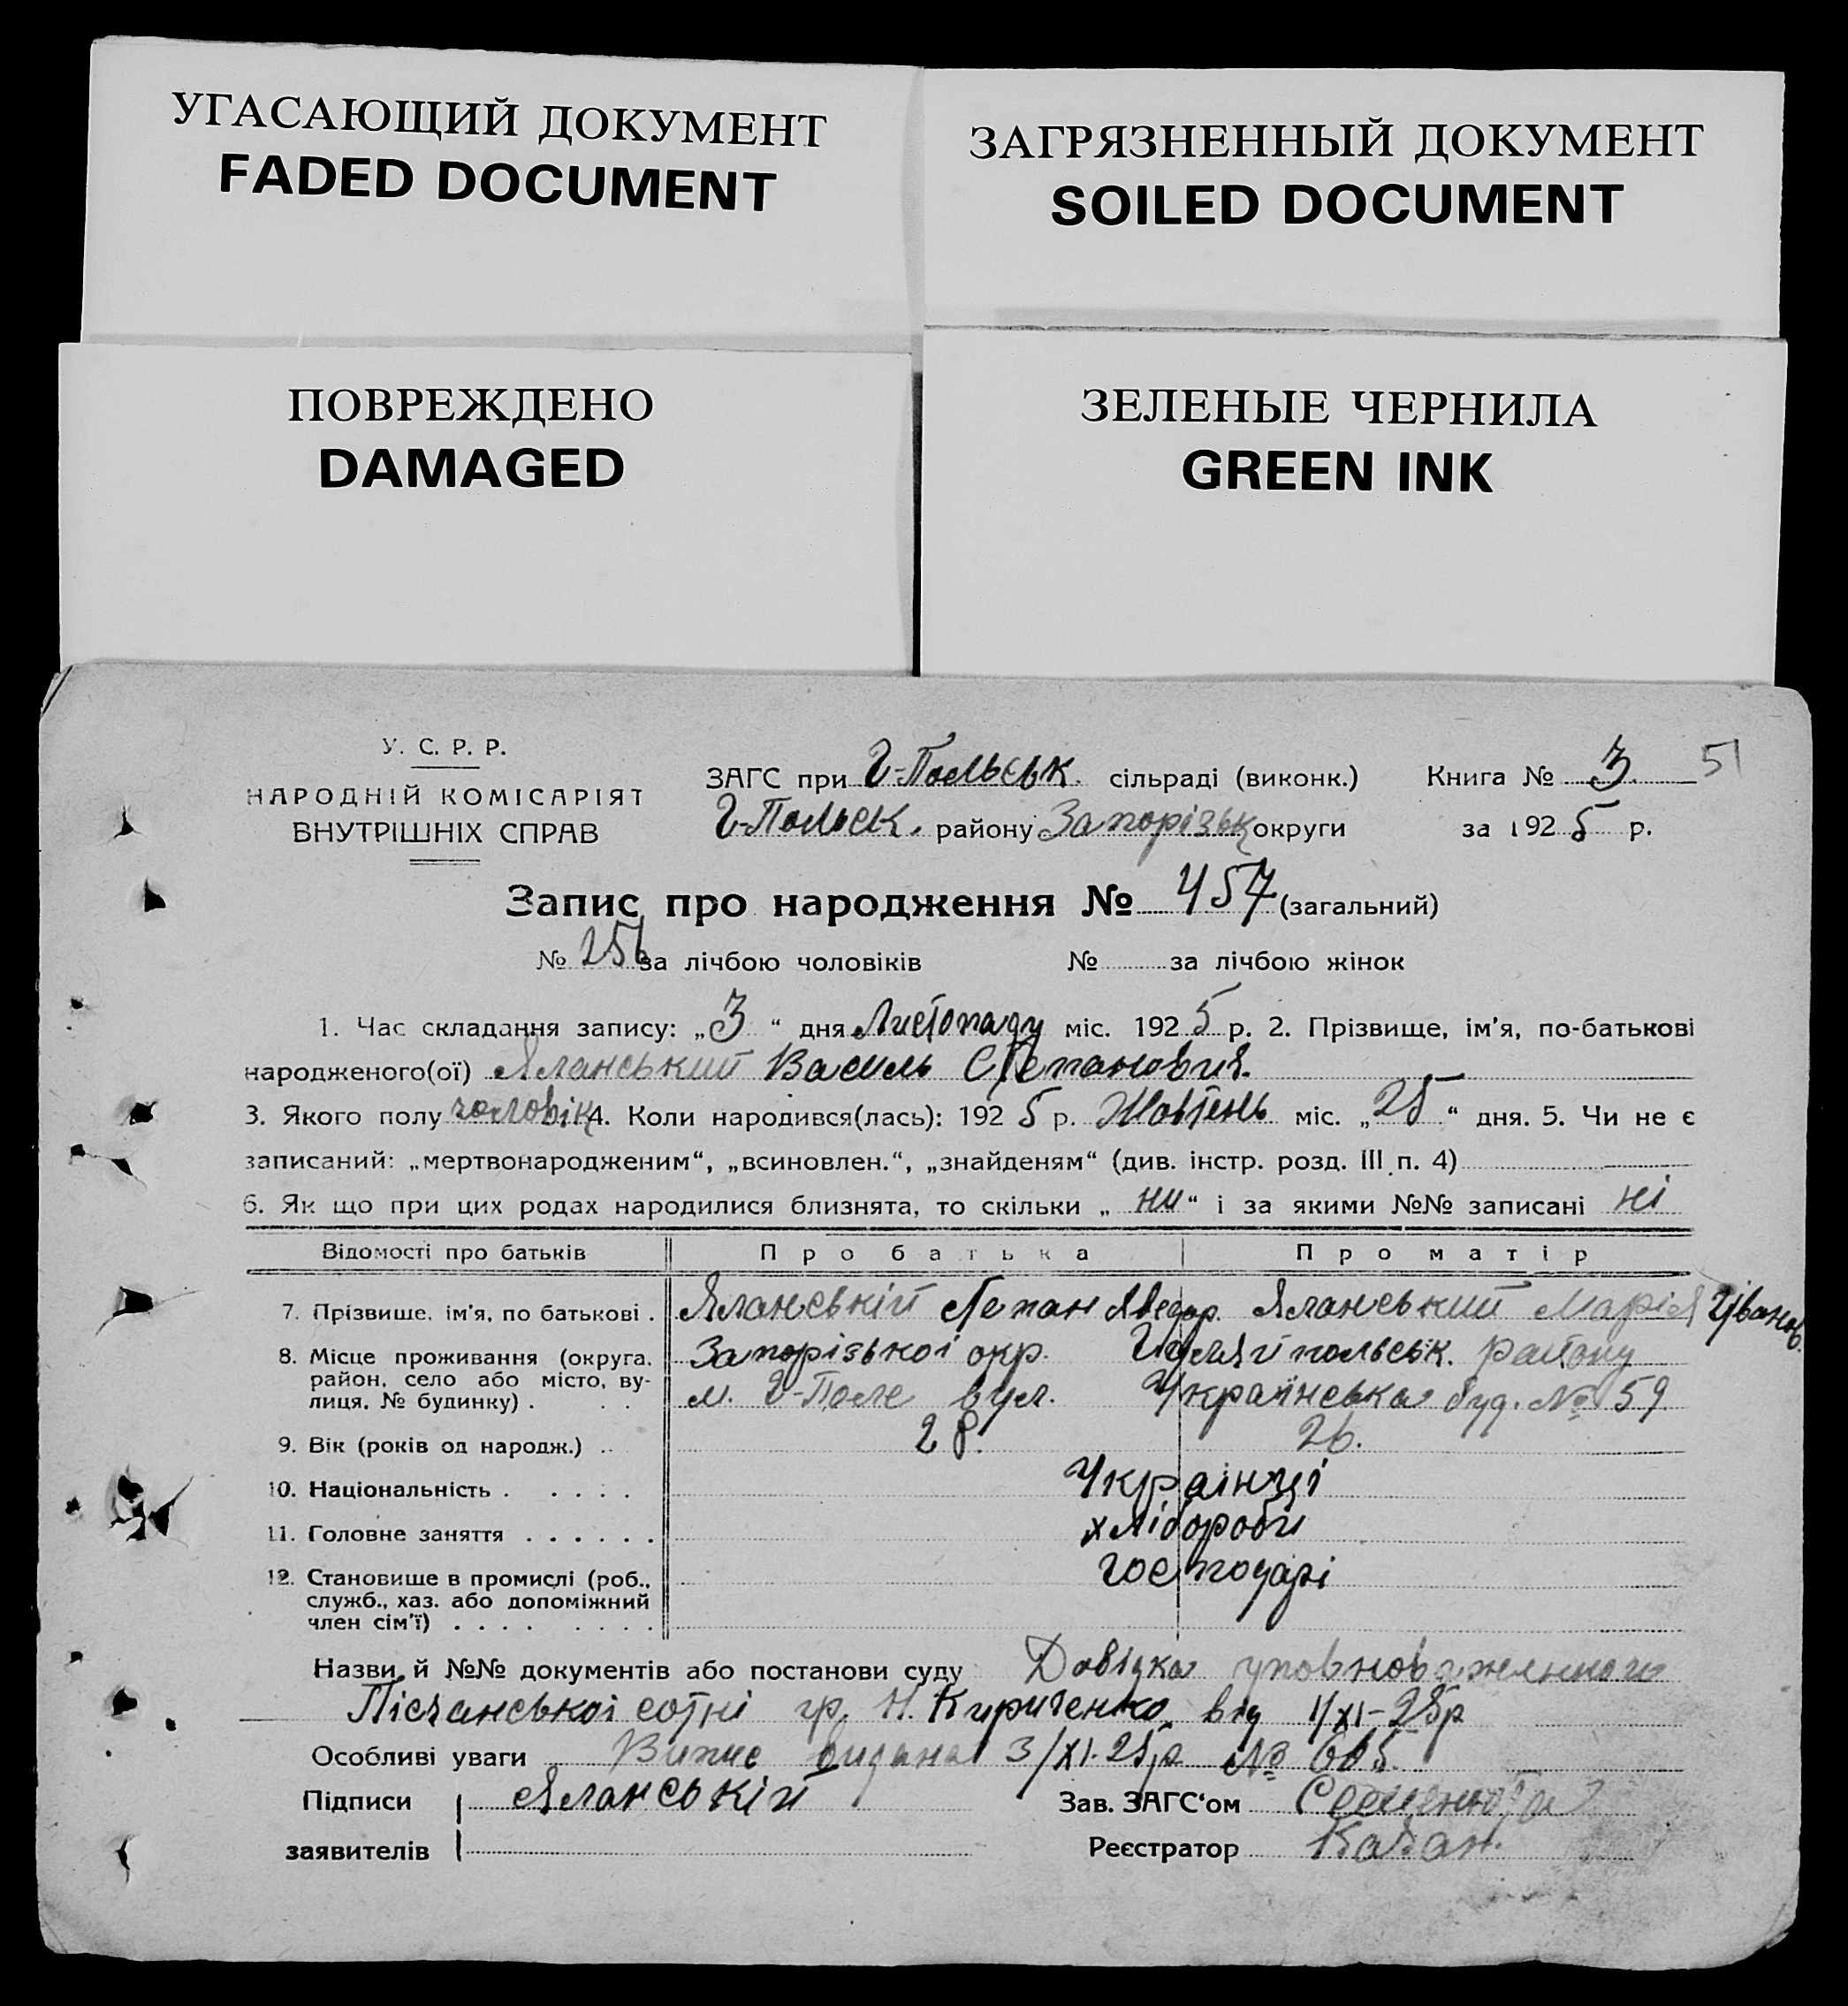 УГАСАЮЩИЙ ДОКУМЕНТ
FADED DOCUMENT
ЗАГРЯЗНЕННЫЙ ДОКУМЕНТ
SOILED DOCUMENT
ПОВРЕЖДЕНО
DAMAGED
ЗЕЛЕНЫЕ ЧЕРНИЛА
GREEN INK
У. С. Р. Р.
НАРОДНІЙ КОМІСАРІЯТ
ВНУТРІШНІХ СПРАВ
ЗАГС при Г-Польськ. сільраді (виконк.) Книга № 3. 51
Г-Польськ. району Запорізьк округи за 1925 р.
Запис про народження № 457 (загальний)
№ 256 за лічбою чоловіків № за лічбою жінок
1. Час складання запису: „3“ дня Листопаду міс. 1925 р. 2. Прізвище, ім'я, по-батькові
народженого(ої) Яланський Василь Степанович.
3. Якого полу чоловік 4. Коли народився(лась): 1925 р. Жовтень міс. „25“ дня. 5. Чи не є
записаний: „мертвонародженим“, „всиновлен.“, „знайденям“ (див. інстр. розд. III п. 4)
6. Як що при цих родах народилися близнята, то скільки „ни“ і за якими №№ записані ні
Відомості про батьків Про батька Про матір
7. Прізвище, ім'я, по батькові . Яланській Степан Яланський Марія Іванов.
8. Місце проживання (округа, район, село або місто, вулиця, № будинку) . . . Запорізькоі окр. Гуляйпольськ. району
м. Г-Поле вул. Українська буд. № 59
9. Вік (років од народж.) .. 28. 26.
10. Національність . . . . . Українці
11. Головне заняття . . . . . . хлібороби
12. Становище в промислі (роб., служб., хаз. або допоміжний член сім'ї) . . . . . . . . господарі
Назви й №№ документів або постанови суду Довідка уповноваженного
Пісчанськоі сотні гр. Н. Кириченко від 1/XI-25р
Особливі уваги Випис видана 3/XI.25р № 665.
Підписи Яланській Зав. ЗАГС'ом
заявителів Реєстратор